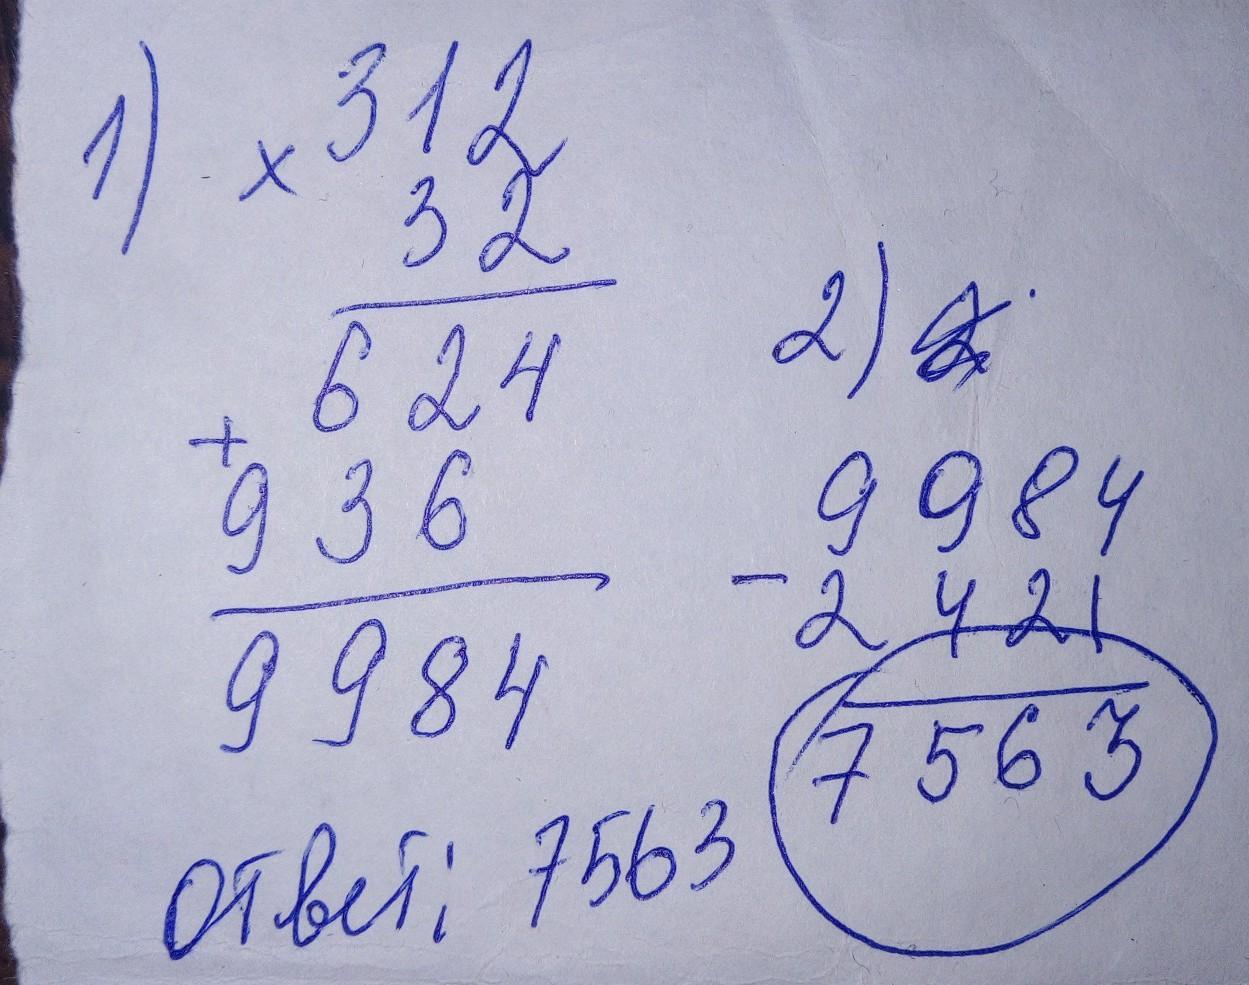 1) × 312
32
624
+
936
9984
2)
9984
- 2421
7563
Ответ: 7563